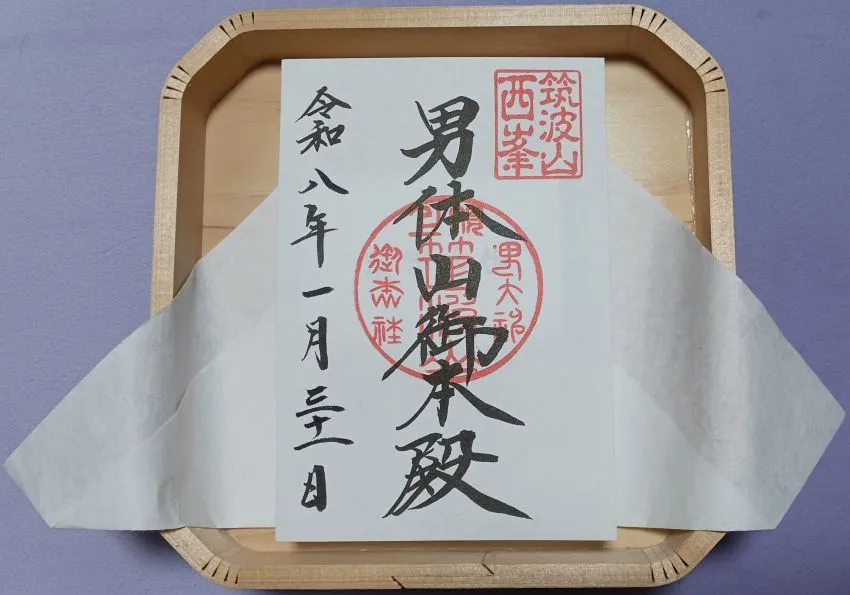 筑波山
西峯
男体山御本殿
令和八年一月三十一日